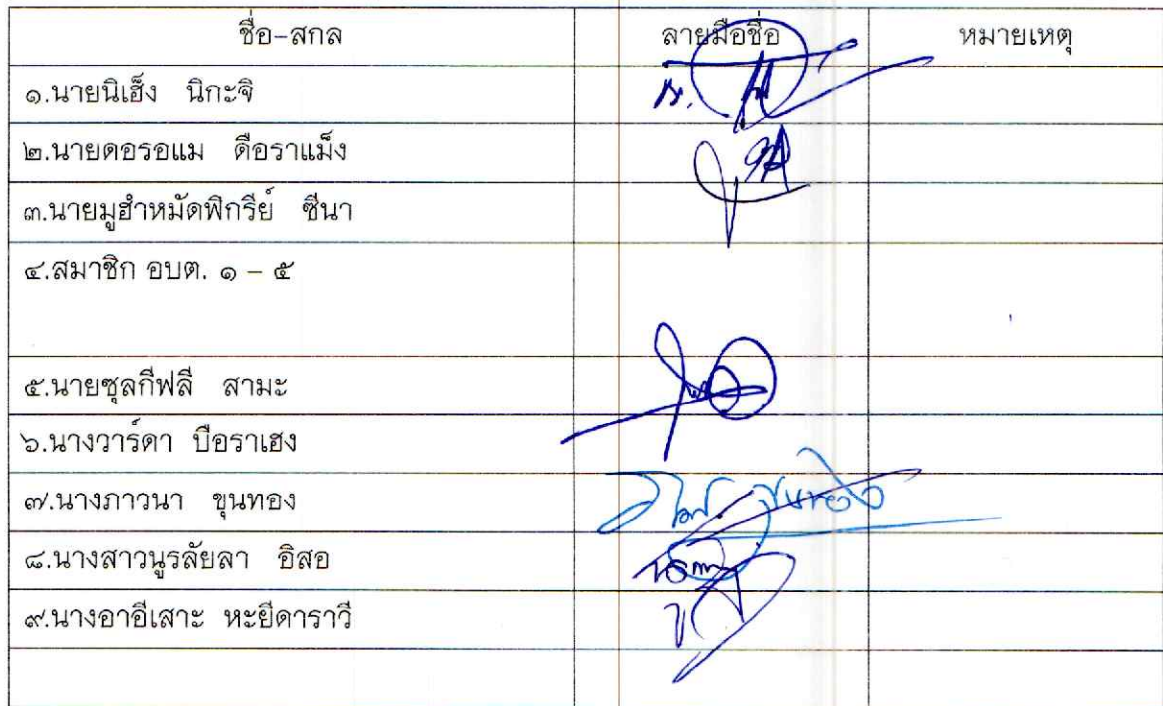 ชื่อ-สกล ลายมือชื่อ หมายเหตุ
๑.นายนิเฮ็ง นิกะจิ
๒.นายดอรอแม ดือราแม็ง
๓.นายมูฮำหมัดพิกรีย์ ซีนา
๔.สมาชิก อบต. ๑ – ๕
๕.นายซุลกีฟลี สามะ
๖.นางวาร์ดา บือราเฮง
๗.นางภาวนา ขุนทอง
๘.นางสาวนูรลัยลา อิสอ
๙.นางอาอีเสาะ หะยีดาราวี